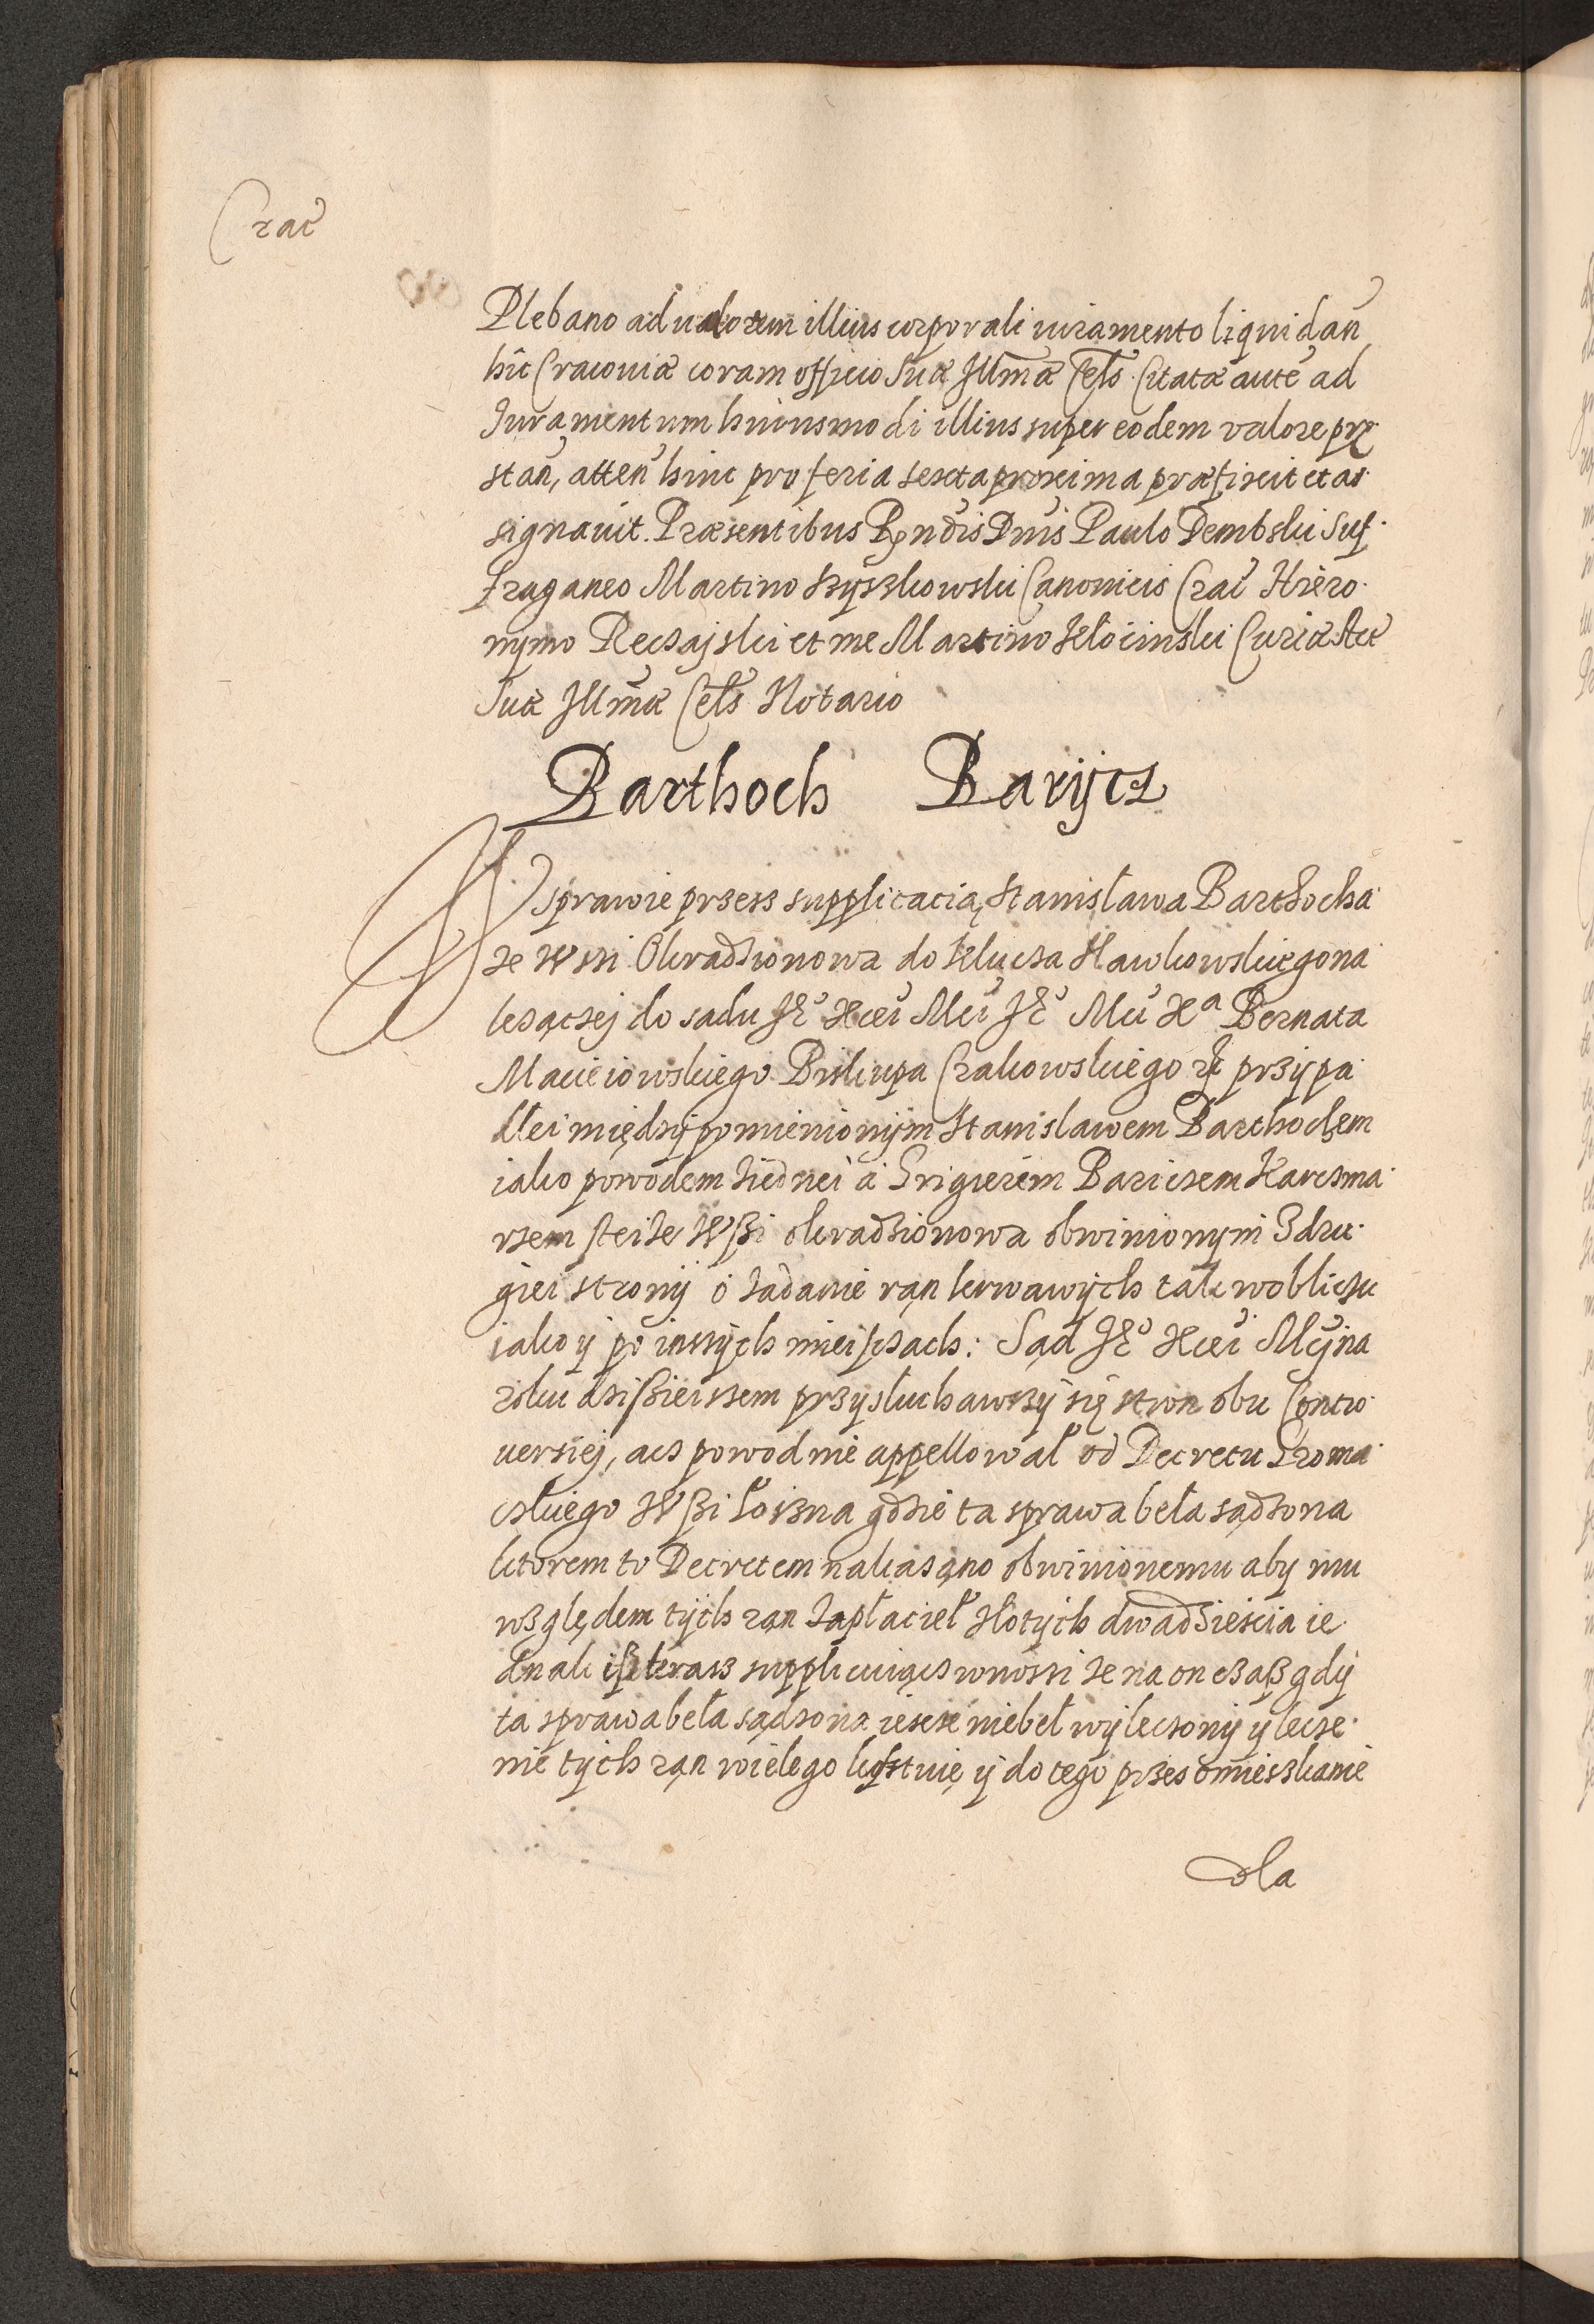 Crac̃
Plebano ad ualorem illius corporali iuramento liquidañ
hic Cracouiæ coram officio Suæ Illm̃æ Cels̃ Citatæ autẽ ad
Iuramentum huiusmodi illius super eodem valore præ
stañ, atteñ hinc pro feria sexta proxima præfixit et as
signauit. Præsentibus Rñdis Dñis Paulo Dembski Suf
fraganeo Martino Szyszkowski Canonicis Crac̃ Hiero
nymo Reczajski et me Martino Kłocinski Curiæ
Suæ Illm̃æ Cels̃ Notario
Barthoch Barÿcz
W sprawie przesz supplicacią Stanisława Barthocha
ze wssi Okradzionowa do klucza Sławkowskiego na
lezączej do sadu Je͠ Xcei Mci Je͠ Mci Xa Bernata
Macieiowskiego Biskupa Crakowskiego przÿpa
dłei międzÿ pomienionÿm Stanislawem Barthochem
iako powodem ziednei a Grigierem Bariczem Karczma
rzem steize Wßi okradzionowa obwinionym Zdru
giei stronÿ o zadanie ran krwawÿch tak wobliczu
iako ÿ po inssÿch mieisczach: Sąd Je͠ Xcei Mci na
roku dzisßieissem przysłuchawszÿ się stron obu Contro
uersiej, acz powod nie appellował od Decretu Groma
czkiego Wßi Łoszna gdzie ta sprawa beła sądzona
ktorem to Decretem nakazano obwinionemu aby mu
względem tÿch ran zapłacieł złotÿch dwadzieścia ie
dnak iß terasz supplicuiącz wnossi ze na on czaß gdÿ
ta sprawa beła sądzona iescze niebeł wÿleczonÿ ÿ lecze
nie tÿch ran wielego kosztuię ÿ do tego przes omieszkanie
dla